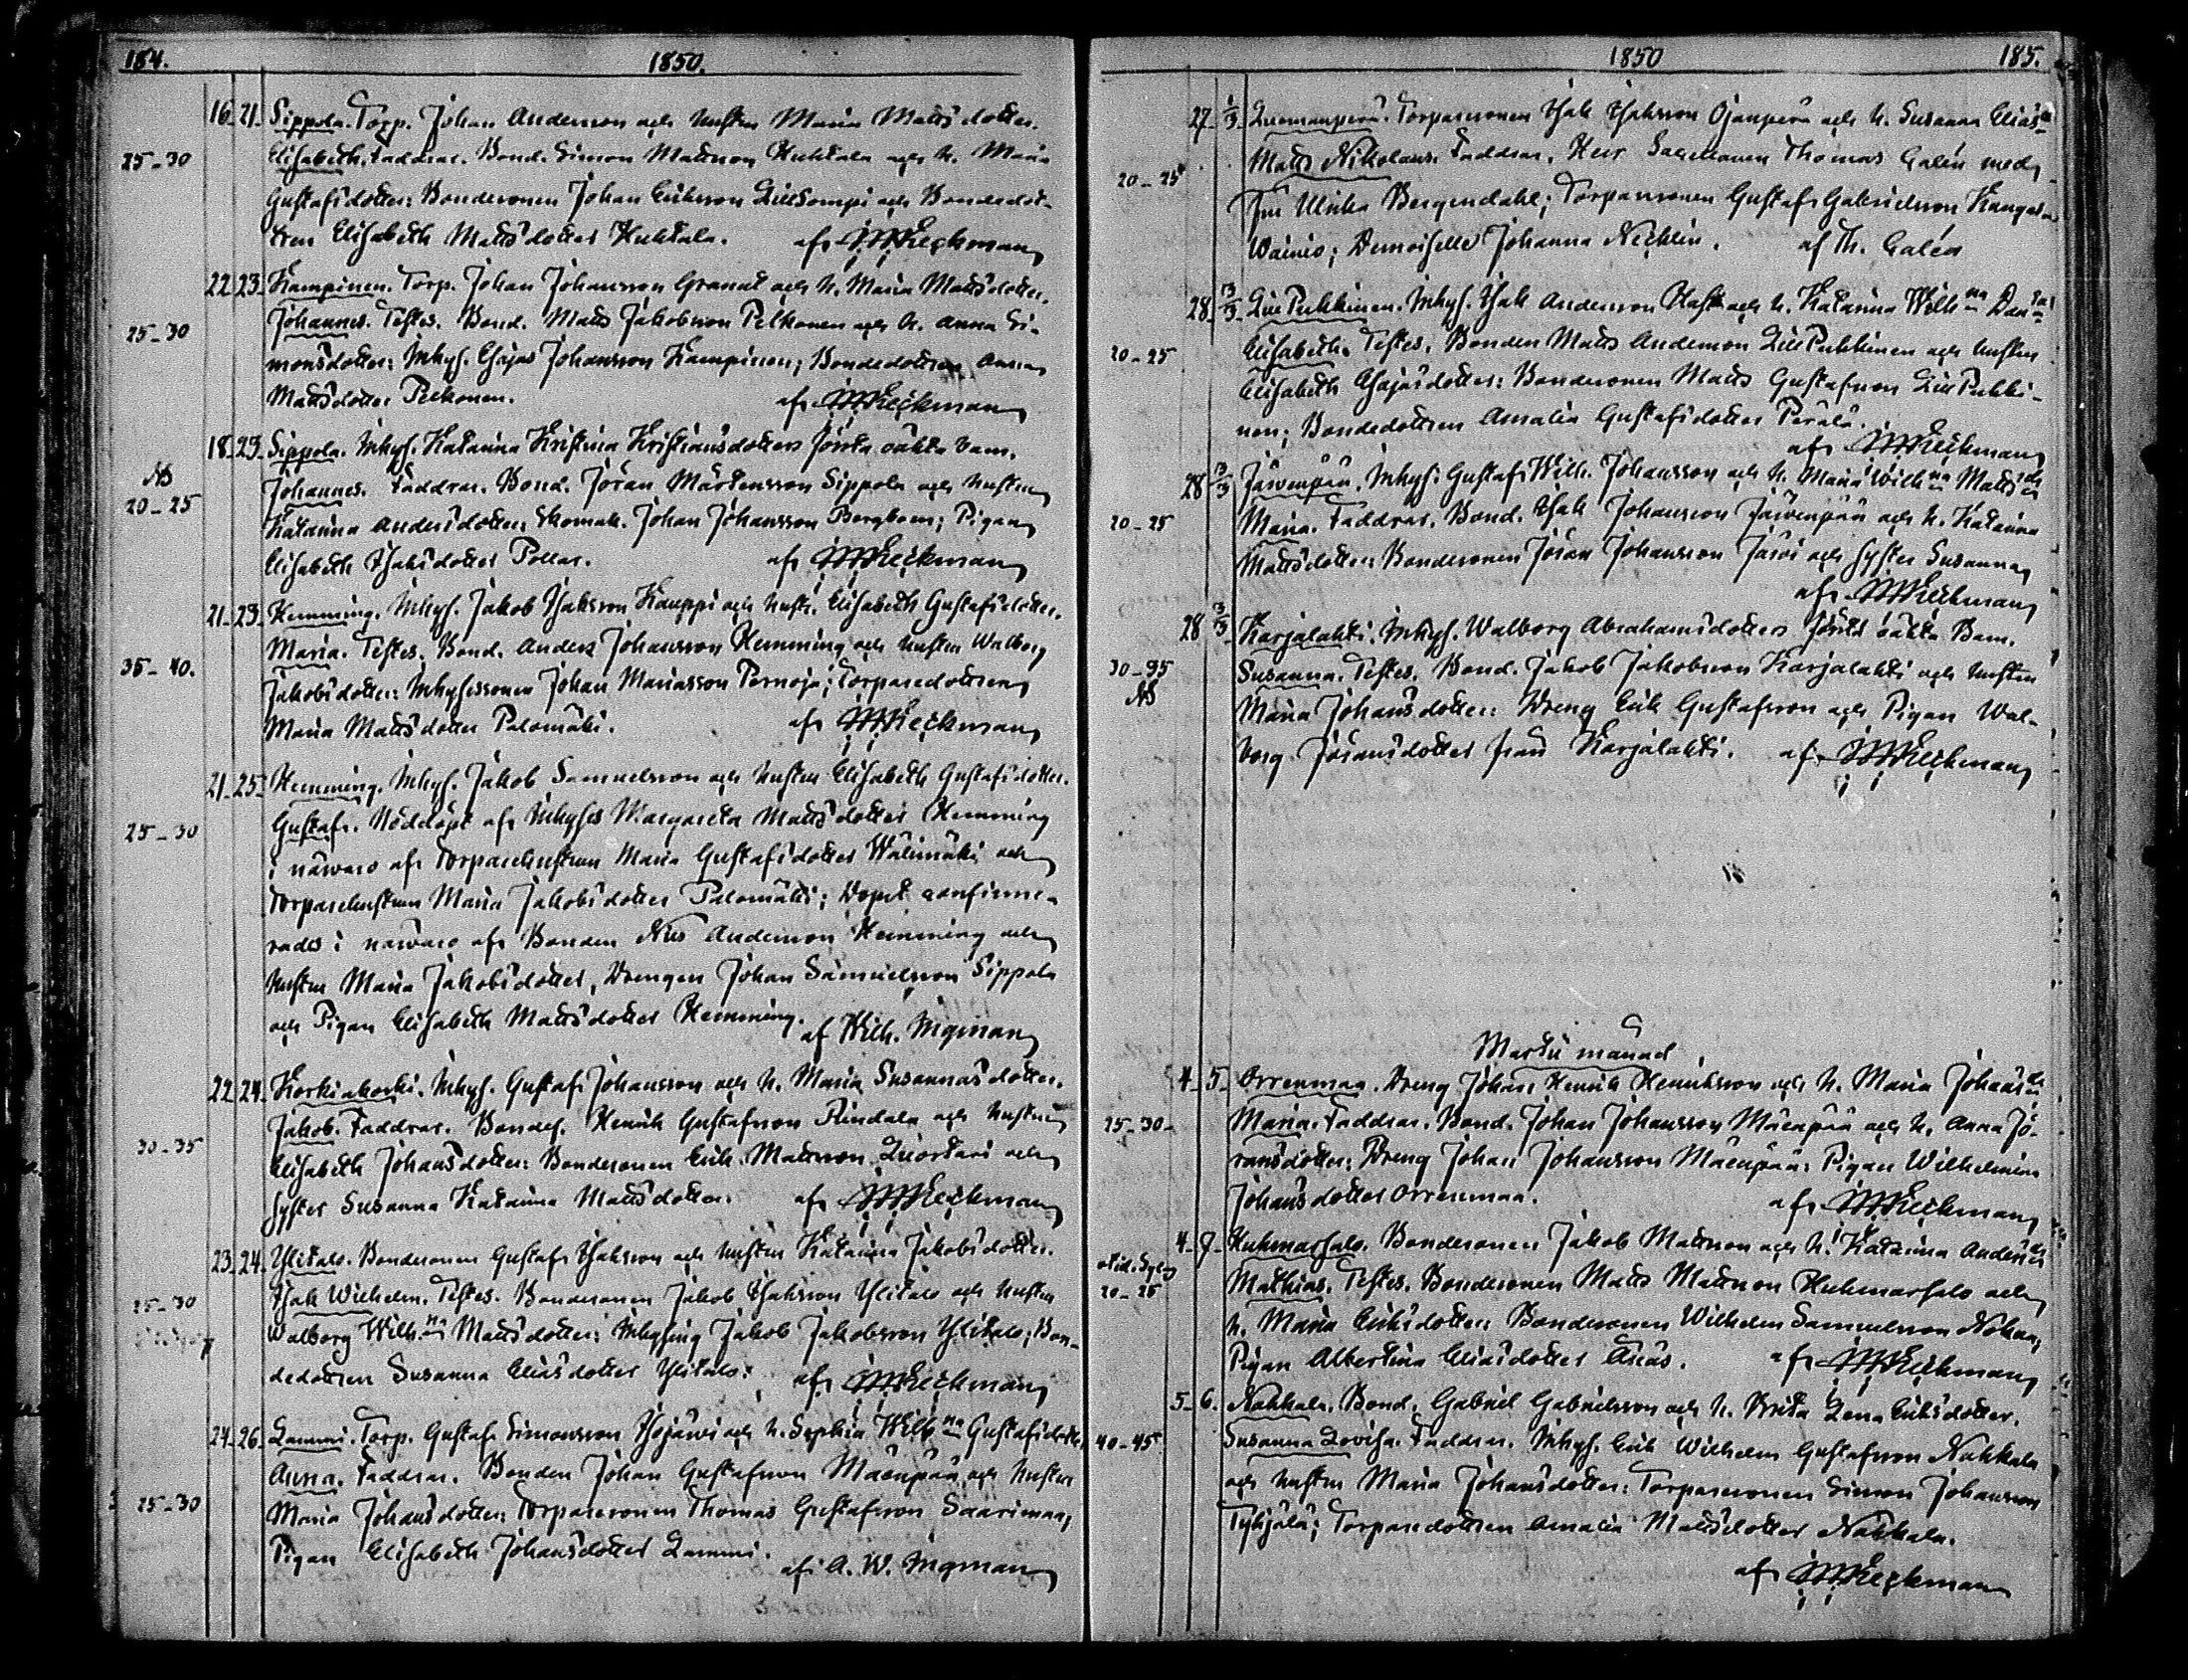 184. 1850.
16. 21. Sippola. Torp. Johan Andersson och hustru Maria Matts dotter.
25-30 Elisabeth. Faddrar. Bond. Simon Mattsson Huhtala och h. Maria
Gustafsdotter: Bondesonen Johan Eriksson Lillsompi och Bondedot-
tren Elisabeth Matts dotter Huhtala. af Heckman
22. 23. Kampinen. Torp. Johan Johansson Granat och h. Maria Matts dotter.
25-30 Johannes. Testes. Bond. Matts Jakobsson Pelkonen och h. Anna Si-
monsdotter: Inhys. Esajas Johansson Kampinen; Bondedottren Anna
Mattsdotter Pelkonen. af Heckman
18. 23. Sippola. Inhys. Katarina Kristina Kristiansdotters första oäkta barn.
20-25 Johannes. Faddrar. Bond. Jöran Mårtensson Sippola och hustru
Katarina Andersdotter: Skomak. Johan Johansson Bergbom; Pigan
Elisabeth Isaksdotter Pollar. af Heckman
21. 23. Hemming. Inhys. Jakob Isaksson Kauppi och hustr. Elisabeth Gustafsdotter.
35-40. Maria. Testes. Bond. Anders Johansson Hemming och hustru Walborg
Jakobsdotter: Inhysessonen Johan Mariasson Pernoja; Torparedottren
Maria Mattsdotter Palomäki. af Heckman
21. 25. Hemming. Inhys. Jakob Samuelsson och hustru Elisabeth Gustafsdotter.
25-30 Gustaf. Nöddöpt af Inhyses Margareta Mattsdotter Hemming
i närvaro af Torparehustrun Maria Gustafsdotter Wälimäki och
Torparehustrun Maria Jakobsdotter Palomäki; Dopet confirme-
rades i närvaro af Bonden Nils Andersson Hemming och
hustru Maria Jakobsdotter, Drengen Johan Samuelsson Sippola
och Pigan Elisabeth Mattsdotter Hemming. af Wilh. Ingman
22. 24. Korkiakoski. Inhys. Gustaf Johansson och h. Maria Susannas dotter.
30-35 Jakob. Faddrar. Bondes. Henrik Gustafsson Rindala och hustru
Elisabeth Johansdotter: Bondesonen Erik Mattsson Luortari och
Syster Susanna Katarina Mattsdotter. af Heckman
23. 24. Ylitalo. Bondesonen Gustaf Isaksson och hustru Katarina Jakobsdotter.
25-30 Isak Wilhelm. Testes. Bondesonen Jakob Isaksson Ylitalo och hustru
Walborg Wilh:na Mattsdotter: Inhysing Jakob Jakobsson Ylitalo; Bon-
dedottren Susanna Eliasdotter Ylitalo. af Heckman
24. 26. Lammi. Torp. Gustaf Simonsson Isojärvi och h. Sophia Wilh:na Gustafsdotter,
Anna. Faddrar. Bonden Johan Gustafsson Mäenpää och hustru
25-30 Maria Johansdotter: Torparesonen Thomas Gustafsson Saarimaa,
Pigan Elisabeth Johansdotter Lammi. af A. W. Ingman
1850 185.
27. 1/3. Luomanperä. Torparesonen Isak Isaksson Ojanperä och h. Susanna Elias
20-25 Matts Nikolaus. Faddrar. Herr Sacellanen Thomas Galén med
Fru Ulrika Bergendahl; Torparesonen Gustaf Gabrielsson Kangas
Wainio; Demoiselle Johanna Necklin. af Th. Galén
28. 3/3. Lill Pukkinen. Inhys. Isak Andersson och h. Katarina Wilh:na
20-25 Elisabeth. Testes. Bonden Matts Andersson Lill Pukkinen och hustru
Elisabeth Esajasdotter: Bondesonen Matts Gustafsson Lill Pukki-
nen; Bondedottren Amalia Gustafsdotter Perälä.
af Heckman
28 3/3 Järvenpää. Inhys. Gustaf Wilh. Johansson och h. Maria Wilh:na Matts dr
20-25 Maria. Faddrar. Bond. Isak Johansson Järvenpää och h. Katarina
Mattsdotter: Bondesonen Jöran Johansson och Syster Susanna
af Heckman
28 3/3 Karjalahti. Inhys. Walborg Abrahamsdotters första oäkta Barn.
30-35 Susanna. Testes. Bond. Jakob Jakobsson Karjalahti och hustru
Maria Johansdotter: Dreng Erik Gustafsson och Pigan Wal-
borg Jöransdotter från Karjalahti. af Heckman
Martii månad
4. 5. Orrenmaa. Dreng Johan Henrik Henriksson och h. Maria Johans dr
25-30. Maria. Faddrar. Bond. Johan Johansson Mäenpää och h. Anna Jö-
ransdotter: Dreng Johan Johansson Mäenpää: Pigan Wilhelmina
Johansdotter Orrenmaa. af Heckman
4. 7. Huhmarsalo. Bondesonen Jakob Mattsson och h. Katarina Anders dr
20-25 Mathias. Testes. Bondesonen Matts Mattsson Huhmarsalo och
h. Maria Eriksdotter: Bondesonen Wilhelm Samuelsson
Pigan Albertina Eliasdotter Asias. af Heckman
5. 6. Nahkala. Bond. Gabriel Gabrielsson och h. Brita Lena Eriksdotter.
40-45. Susanna Lovisa. Faddrar. Inhys. Erik Wilhelm Gustafsson Nahkala
och hustru Maria Johansdotter: Torparesonen Simon Johansson
Tyhjälä; Torparedottren Amalia Mattsdotter Nahkala.
af Heckman